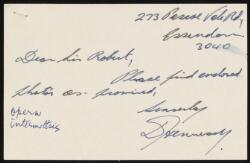 273 Pascoe Vale Rd,
Essendon
3040
Dear Sir Robert,
Please find enclosed
photos as promised,
Sincerely
opera